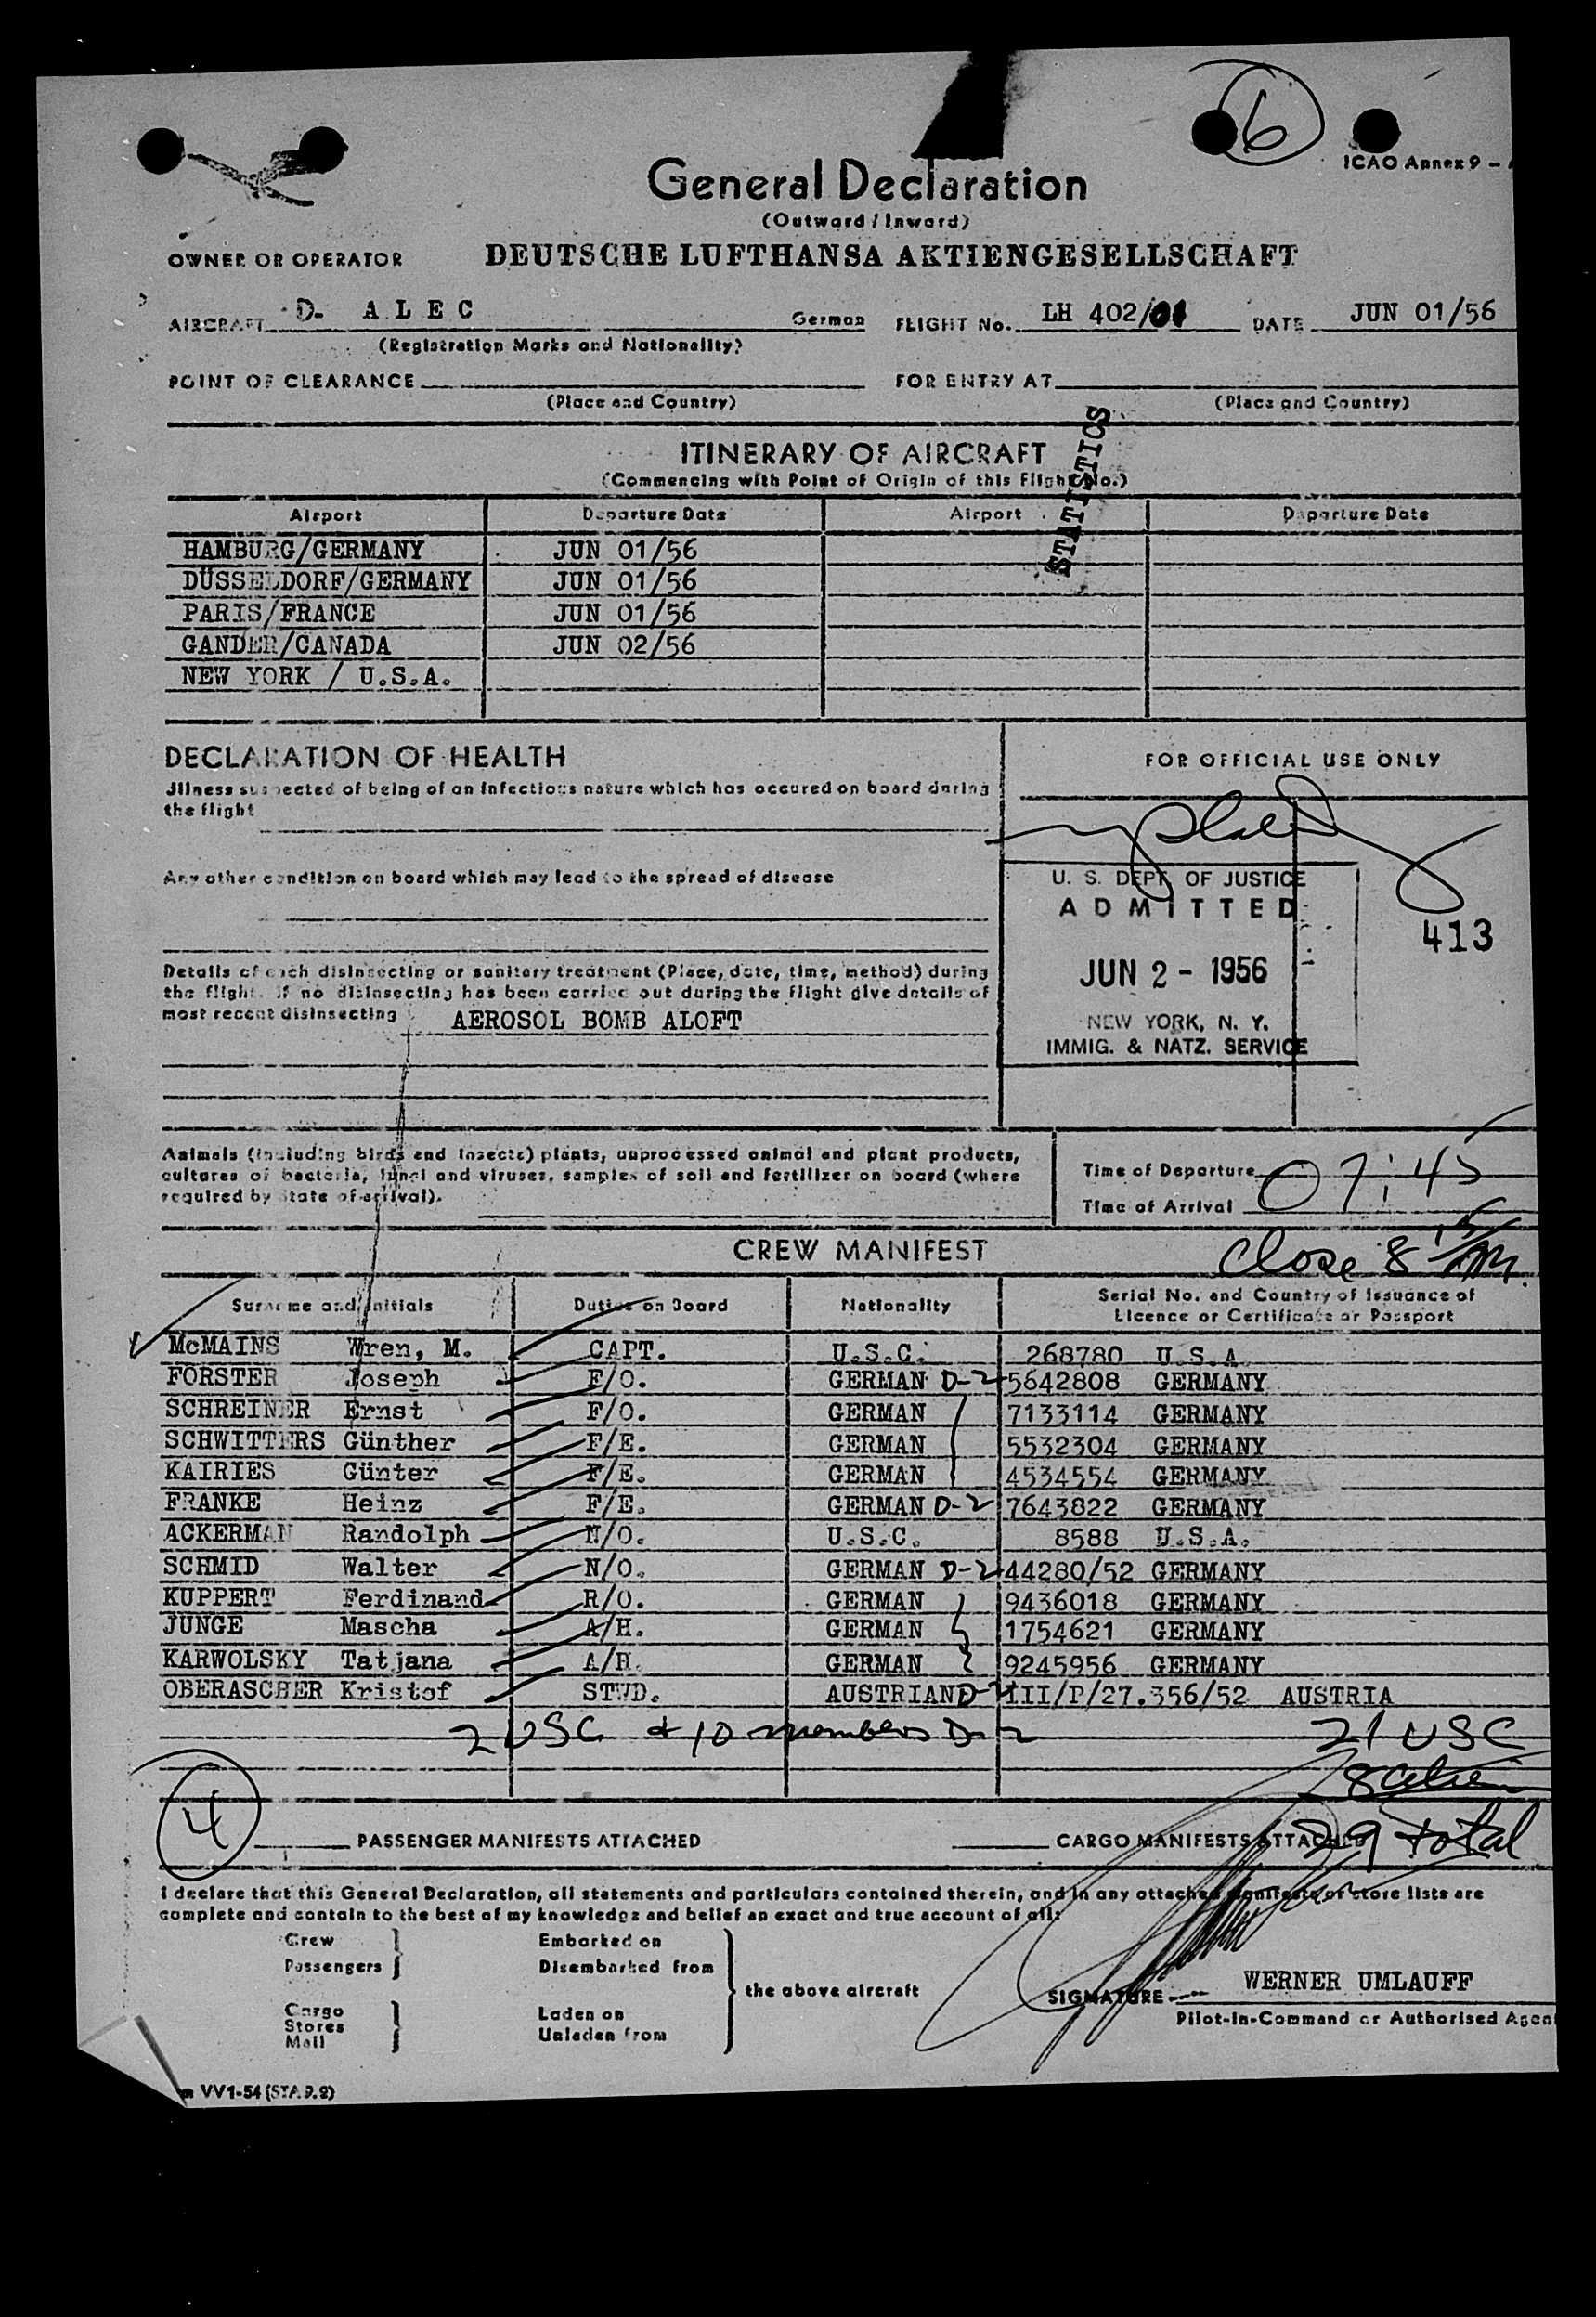 6
ICAO Annex 9 –
General Declaration
(Outward / Inward)
OWNER OR OPERATOR DEUTSCHE LUFTHANSA AKTIENGESELLSCHAFT
AIRCRAFT D- ALEC German FLIGHT No. LH 402/01 DATE JUN 01/56
(Registration Marks and Nationality)
POINT OF CLEARANCE FOR ENTRY AT
(Place and Country) (Place and Country)
STATISTICS
ITINERARY OF AIRCRAFT
(Commencing with Point of Origin of this Flight No.)
Airport Departure Date Airport Departure Date
HAMBURG/GERMANY JUN 01/56
DÜSSELDORF/GERMANY JUN 01/56
PARIS/FRANCE JUN 01/56
GANDER/CANADA JUN 02/56
NEW YORK / U.S.A.
DECLARATION OF HEALTH
Jllness suspected of being of an infectious nature which has occured on board during
the flight
Any other condition on board which may lead to the spread of disease
Details of each disinsecting or sanitary treatment (Place, date, time, method) during
the flight. If no disinsecting has been carried out during the flight give details of
most recent disinsecting AEROSOL BOMB ALOFT
FOR OFFICIAL USE ONLY
U. S. DEPT. OF JUSTICE
ADMITTED
413
JUN 2 - 1956
NEW YORK, N. Y.
IMMIG. & NATZ. SERVICE
Animals (including birds and insects) plants, unprocessed animal and plant products,
cultures of bacteria, fungi and viruses, samples of soil and fertilizer on board (where
required by State of arrival).
Time of Departure 07:45
Time of Arrival
CREW MANIFEST
Close 8 15 AM.
Surname and Initials Duties on Board Nationality Serial No. and Country of Issuance of
Licence or Certificate or Passport
McMAINS Wren, M. CAPT. U.S.C. 268780 U.S.A
FORSTER Joseph F/O. GERMAN D-2 5642808 GERMANY
SCHREINER Ernst F/O. GERMAN 7133114 GERMANY
SCHWITTERS Günther F/E. GERMAN 5532304 GERMANY
KAIRIES Günter F/E. GERMAN 4534554 GERMANY
FRANKE Heinz F/E. GERMAN D-2 7643822 GERMANY
ACKERMAN Randolph N/O. U.S.C. 8588 U.S.A.
SCHMID Walter N/O. GERMAN D-2 44280/52 GERMANY
KUPPERT Ferdinand R/O. GERMAN 9436018 GERMANY
JUNGE Mascha A/H. GERMAN 1754621 GERMANY
KARWOLSKY Tatjana A/H. GERMAN 9245956 GERMANY
OBERASCHER Kristof STWD. AUSTRIAN D-2 III/P/27.356/52 AUSTRIA
2 USC & 10 members D-2
21 USC
8 alien
29 total
4 PASSENGER MANIFESTS ATTACHED CARGO MANIFESTS ATTACHED
I declare that this General Declaration, all statements and particulars contained therein, and in any attached manifests or store lists are
complete and contain to the best of my knowledge and belief an exact and true account of all:
Crew Embarked on
Passengers Disembarked from
the above aircraft
Cargo Laden on
Stores
Mail Unladen from
SIGNATURE WERNER UMLAUFF
Pilot-in-Command or Authorised Agent
VV1-54 (STA 9.2)